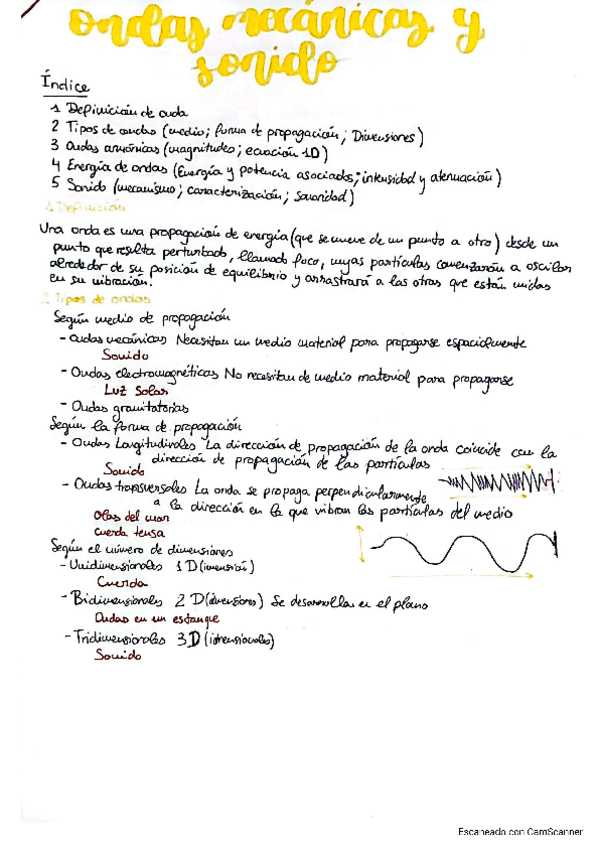 ondas mecánicas y
sonido
Índice
1 Definición de onda
2 Tipos de ondas (medio; forma de propagación; Dimensiones)
3 Ondas armónicas (magnitudes; ecuación 1D)
4 Energía de ondas (Energía y potencia asociados; intensidad y atenuación)
5 Sonido (mecanismo; caracterización; sonoridad)
1 Definición
Una onda es una propagación de energía (que se mueve de un punto a otro) desde un
punto que resulta perturbado, llamado foco, cuyas partículas comenzarán a oscilar
alrededor de su posición de equilibrio y arrastrará a las otras que están unidas
en su vibración.
2 Tipos de ondas
Según medio de propagación
- Ondas mecánicas Necesitan un medio material para propagarse espacialmente
Sonido
- Ondas electromagnéticas No necesitan de medio material para propagarse
Luz Solar
- Ondas gravitatorias
Según la forma de propagación
- Ondas Longitudinales La dirección de propagación de la onda coincide con la
dirección de propagación de las partículas
Sonido
- Ondas transversales La onda se propaga perpendicularmente
a la dirección en la que vibran las partículas del medio
Olas del mar
cuerda tensa
Según el número de dimensiones
- Unidimensionales 1D (imensión)
Cuerda
- Bidimensionales 2D (imensiones) Se desarrollan en el plano
Ondas en un estanque
- Tridimensionales 3D (imensionales)
Sonido
Escaneado con CamScanner